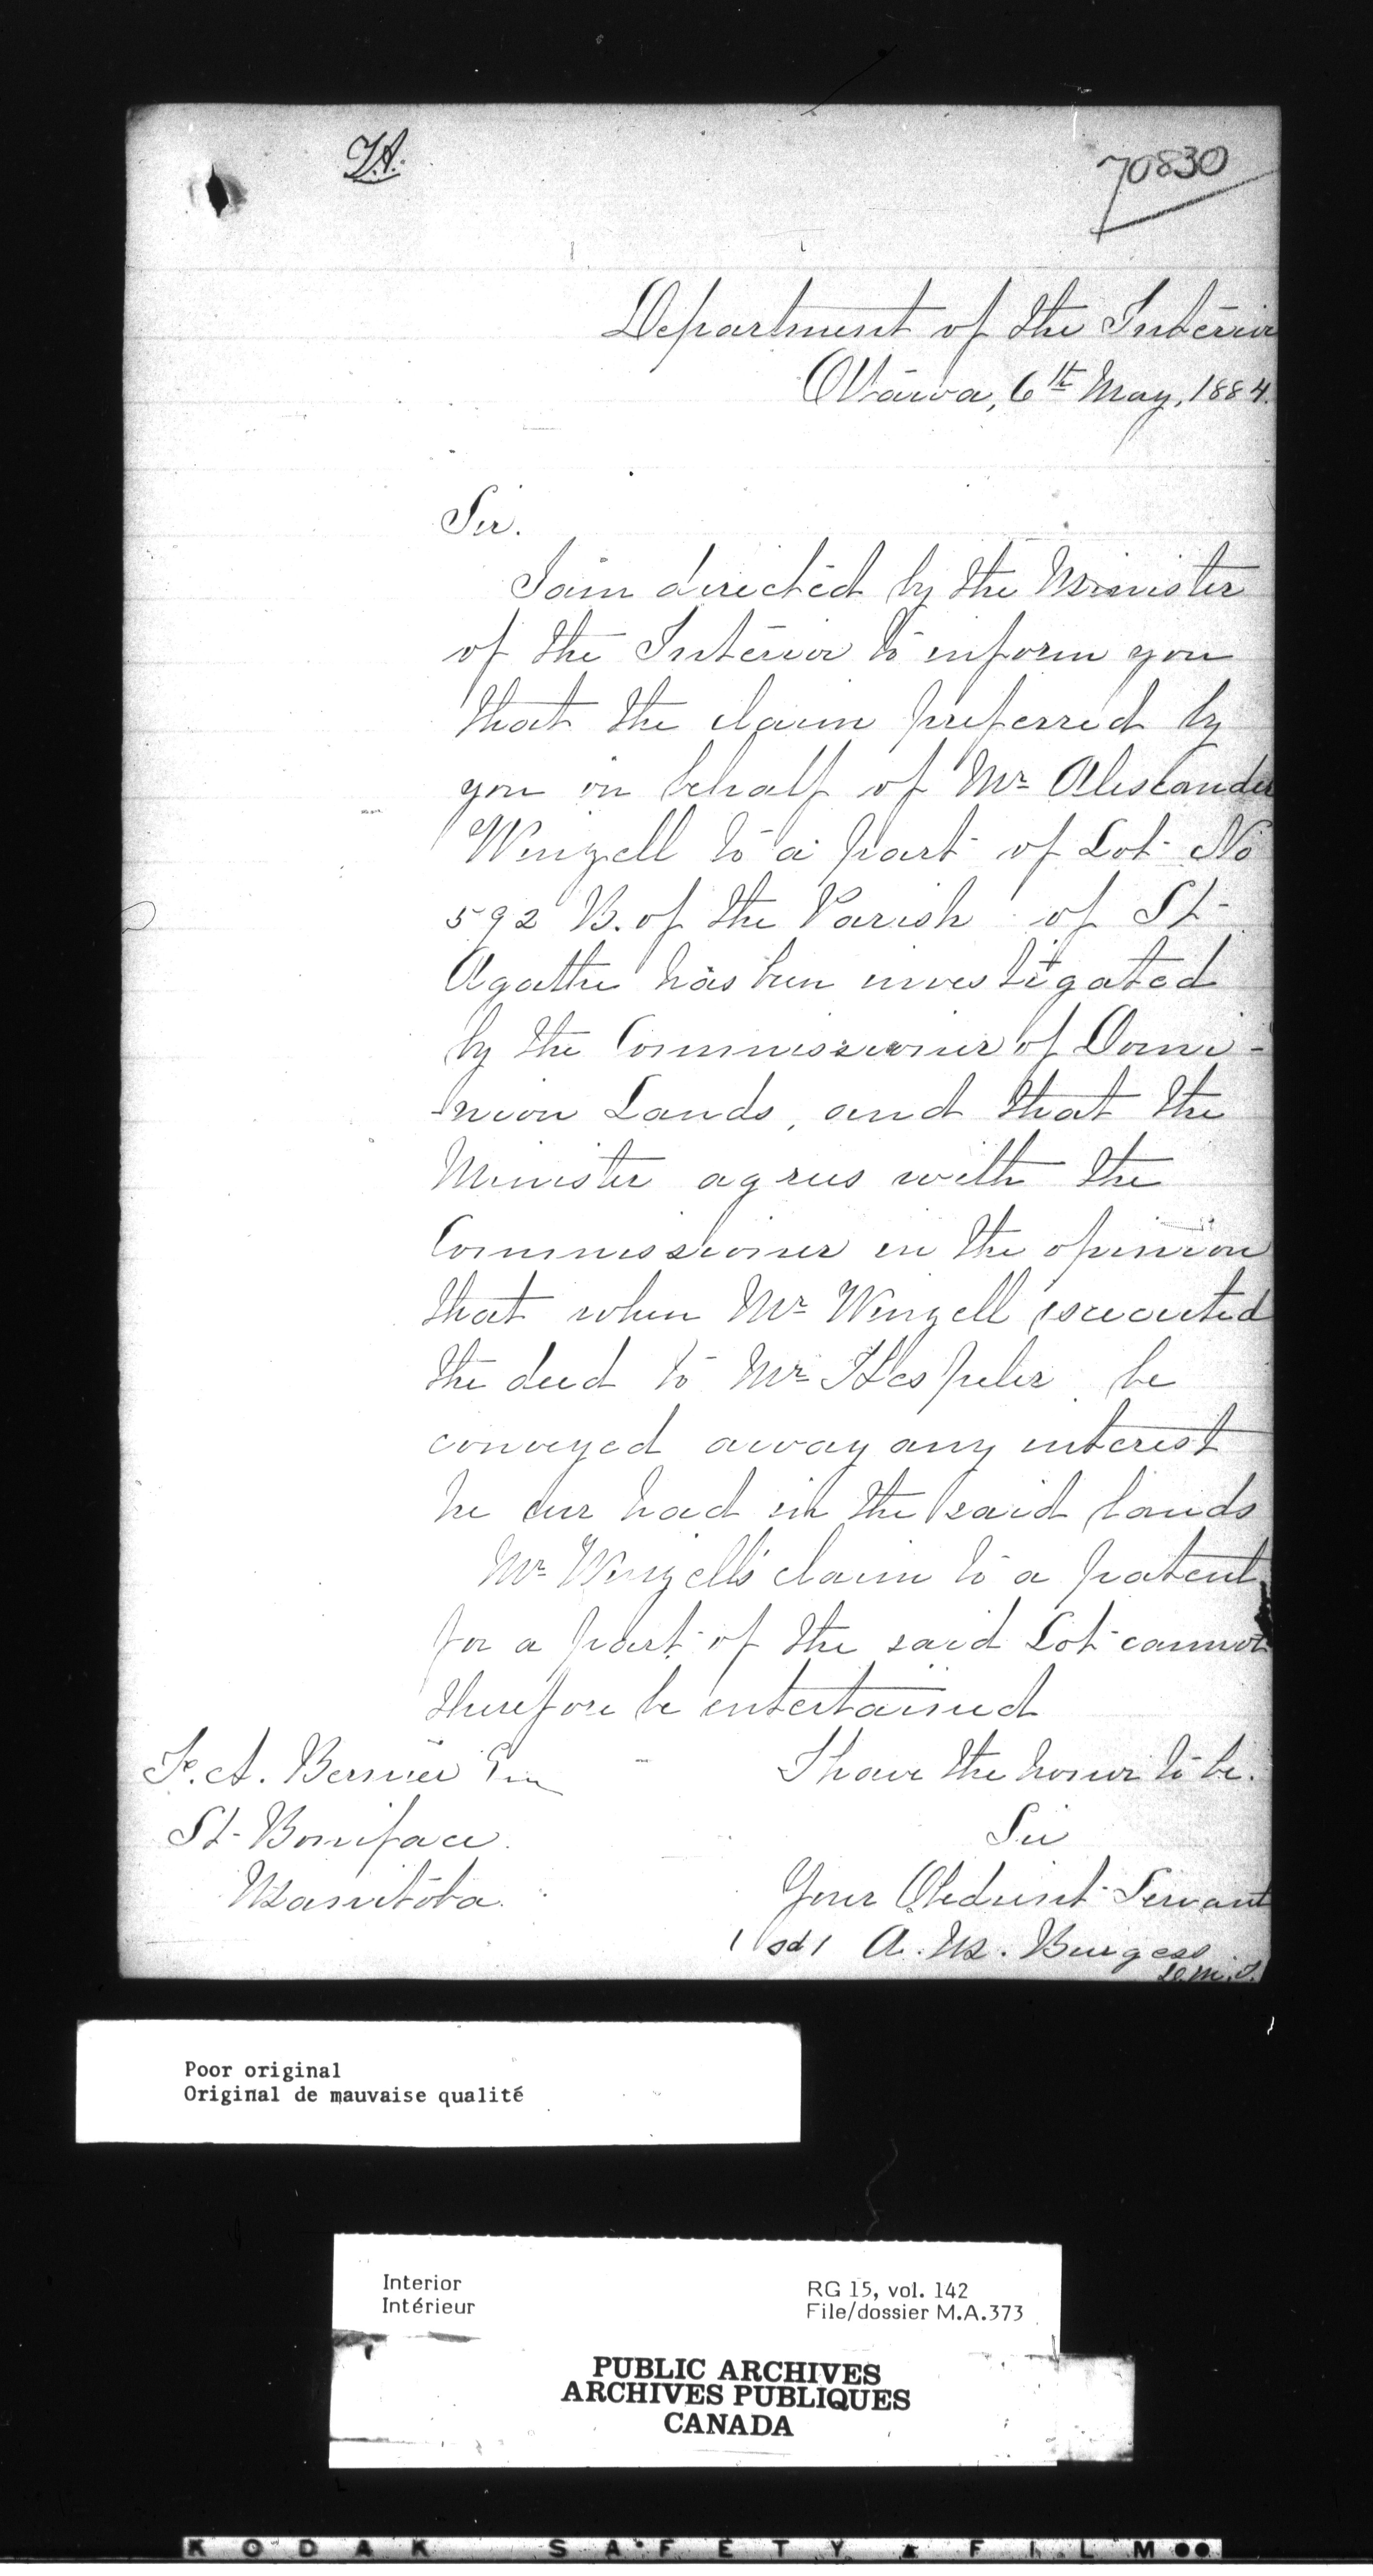 70830
Department of the Interior
Ottawa, 6th May, 1884.
Sir.
I am directed by the Minister
of the Interior to inform you
that the claim preferred by
you on behalf of Mr Alexander
Winzell to a part of Lot No
592 B. of the Parish of St
Agathe has been investigated
by the Commissioner of Domi-
-nion Lands, and that the
Minister agrees with the
Commissioner in the opinion
that when Mr Winzell executed
the deed to Mr Hespeler he
conveyed away any interest
he ever had in the said lands
Mr Winzell's claim to a patent
for a part of the said Lot cannot
therefore be entertained
I have the honor to be.
Sir
Your Obedient Servant
(sd) A. M. Burgess
D.M.I.
Bernier Esq
St Boniface.
Manitoba.
Poor original
Original de mauvaise qualité
Interior
Intérieur
RG 15, vol. 142
File/dossier M.A.373
PUBLIC ARCHIVES
ARCHIVES PUBLIQUES
CANADA
KODAK SAFETY FILM